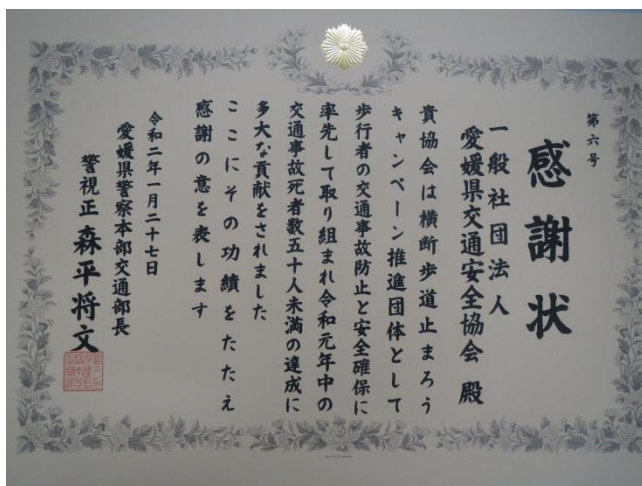 第六号
感謝状
一般社団法人
愛媛県交通安全協会 殿
貴協会は横断歩道止まろう
キャンペーン推進団体として
歩行者の交通事故防止と安全確保に
率先して取り組まれ令和元年中の
交通事故死者数五十人未満の達成に
多大な貢献をされました
ここにその功績をたたえ
感謝の意を表します
令和二年一月二十七日
愛媛県警察本部交通部長
警視正 森平将文